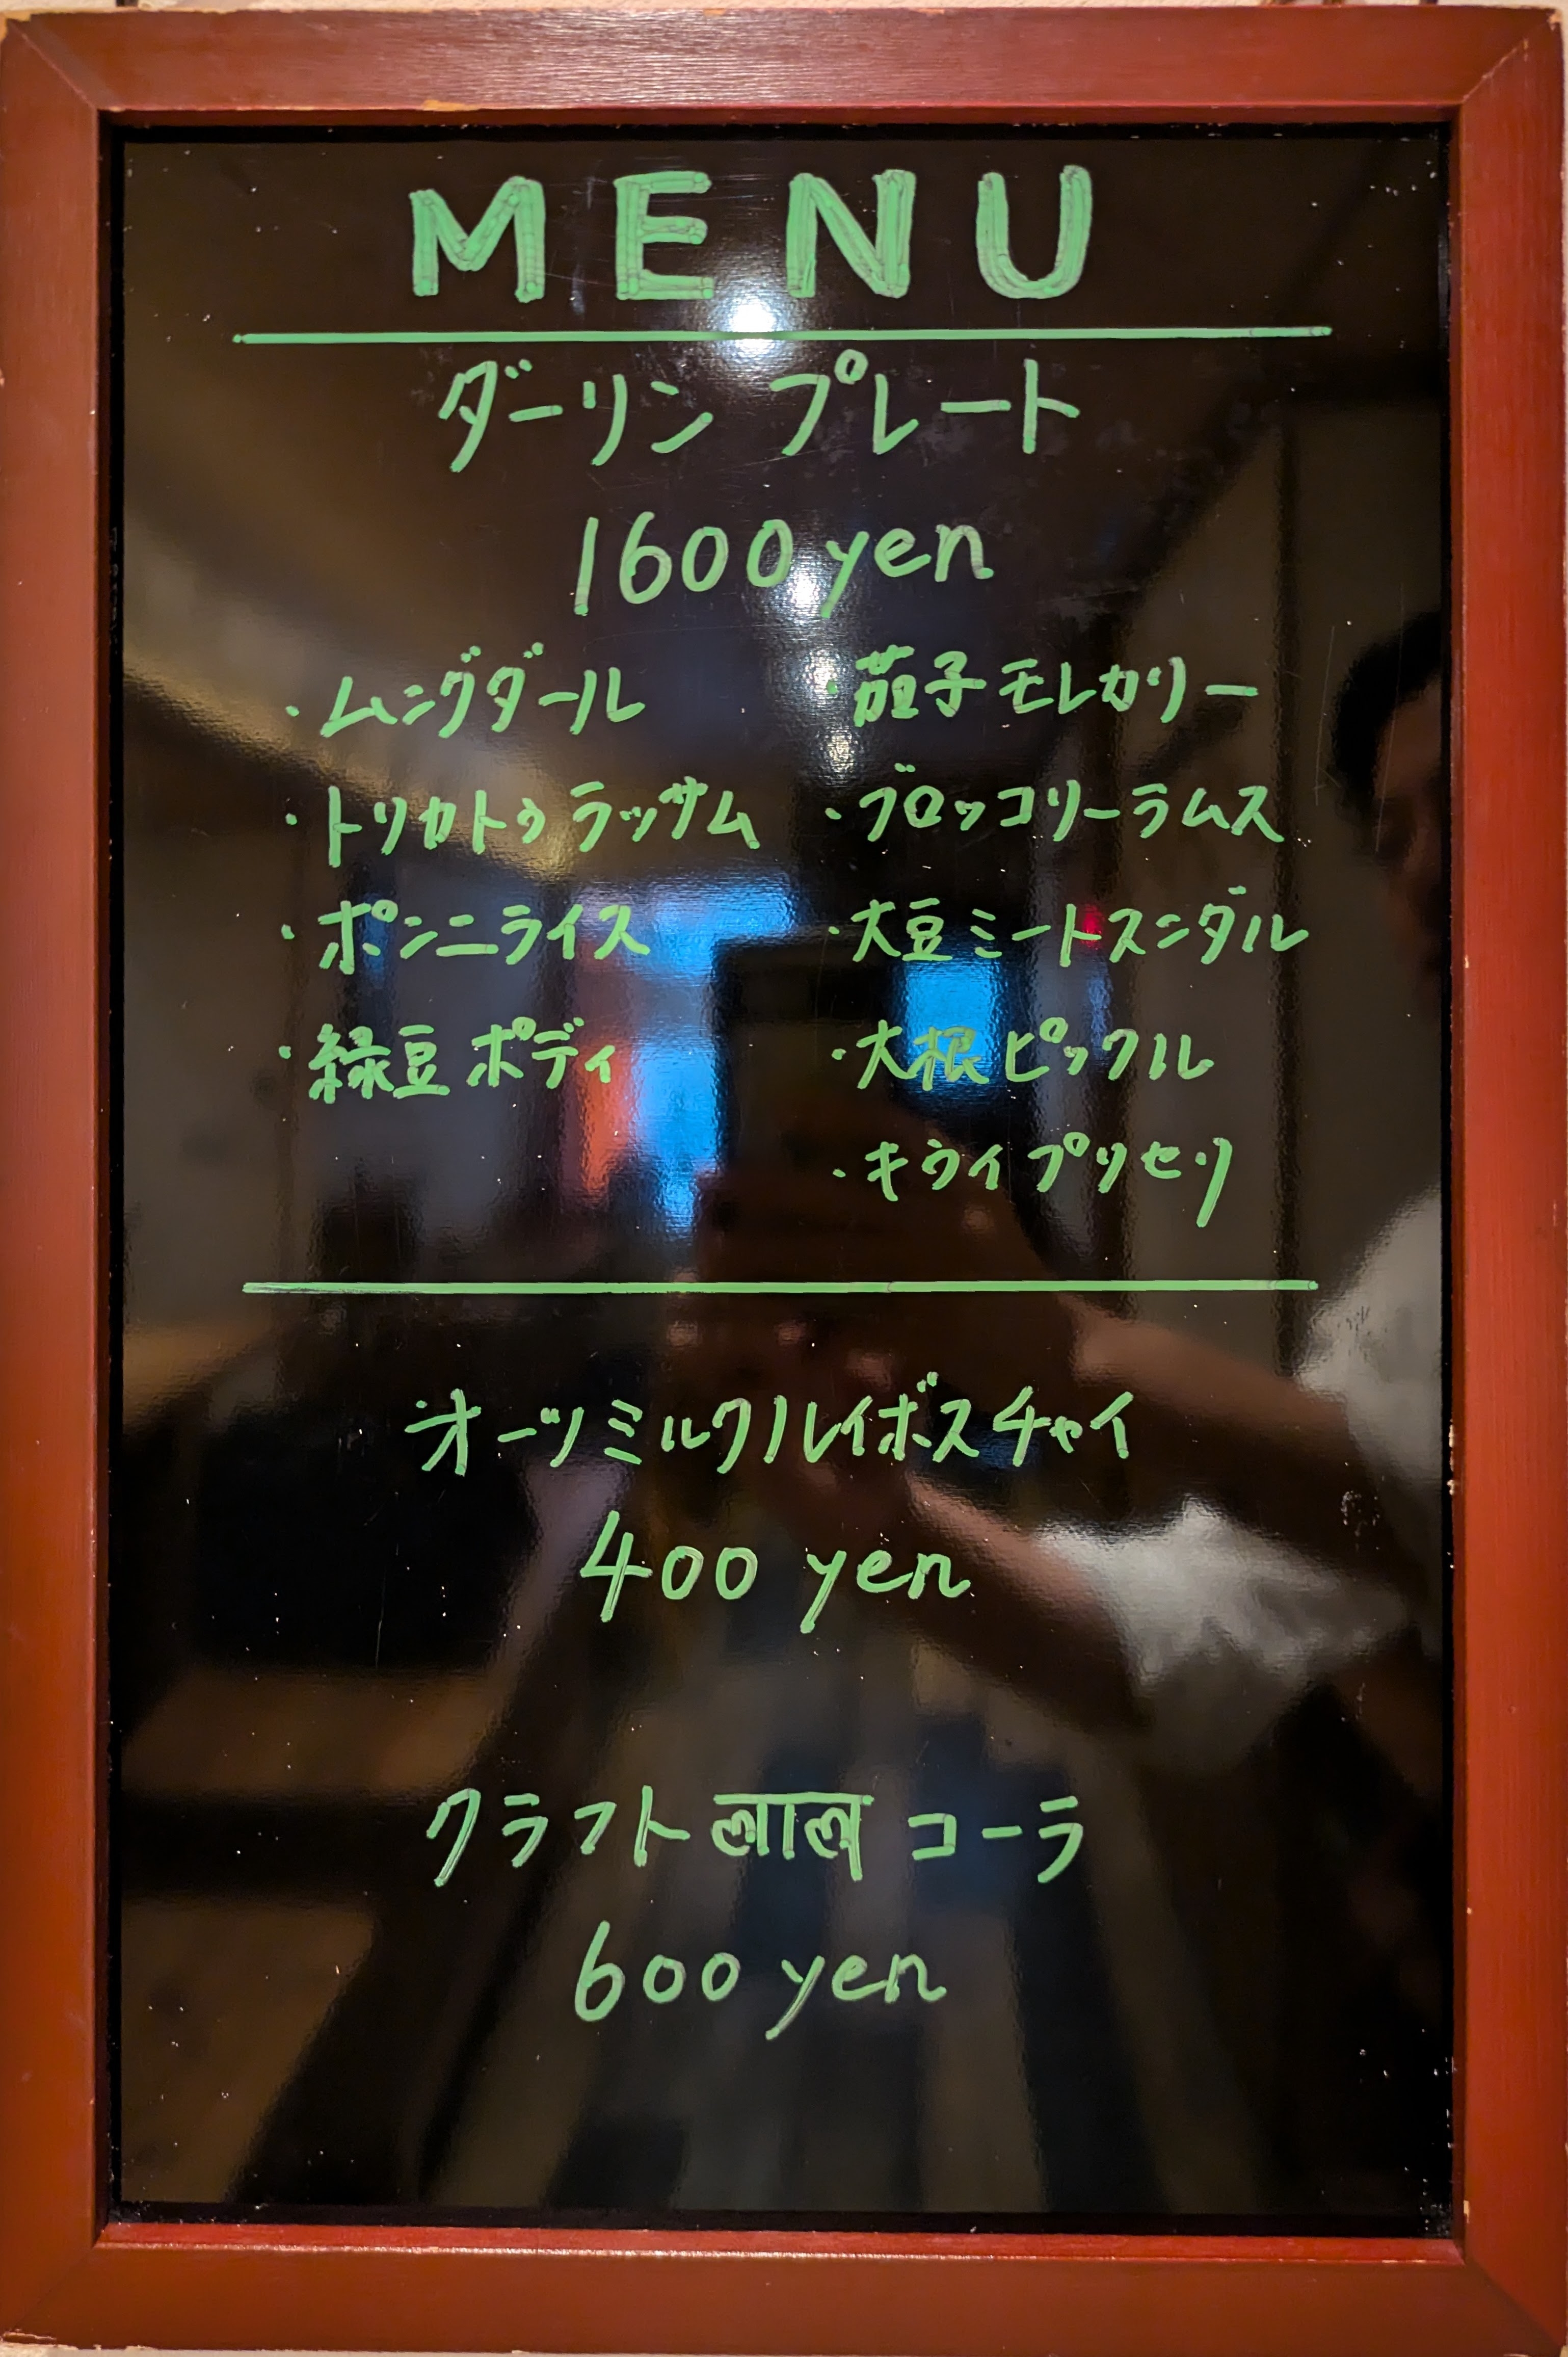 MENU
ダーリン プレート
1600yen
・ムングダール
・トリカトゥラッサム
・ポンニライス
・緑豆ポディ
・茄子モレカリー
・ブロッコリーラムス
・大豆ミートスンダル
・大根ピックル
・キウイプリセリ
オーツミルクルイボスチャイ
400 yen
クラフト लाल コーラ
600 yen